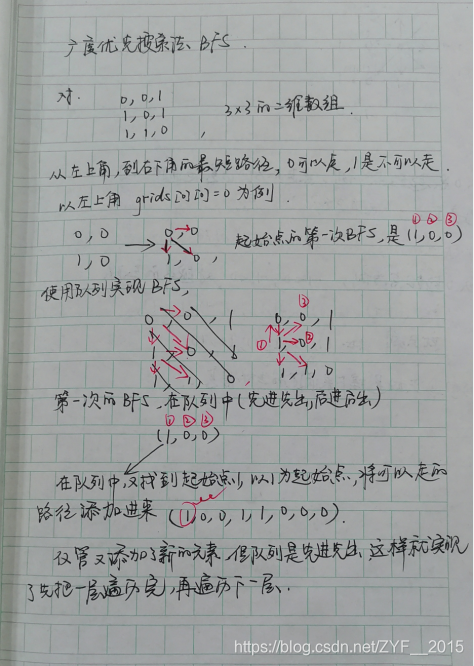 广度优先搜索法、BFS.
对.
0, 0, 1
1, 0, 1 3×3的二维数组.
1, 1, 0 ,
从左上角,到右下角的最短路径, 0可以走, 1是不可以走.
以左上角 grids[0][0]=0 为例.
① ② ③
0, 0 → 0, 0 起始点的第一次BFS, 是 (1, 0, 0)
1, 0 1, 0 ,
使用队列实现BFS,
③
0, 0, 1 0, 0, 1
1, 0, ① 1, 0, ② 1
1, 1, 0 . 1, 1, 0
第一次的BFS, 在队列中(先进先出,后进后出)
① ② ③
(1, 0, 0)
在队列中,又找到起始点1, 以1为起始点,将可以走的
路径添加进来 (1, 0, 0, 1, 1, 0, 0, 0).
仅管又添加了新的元素, 但队列是先进先出, 这样就实现
了先把一层遍历完,再遍历下一层.
https://blog.csdn.net/ZYF__2015